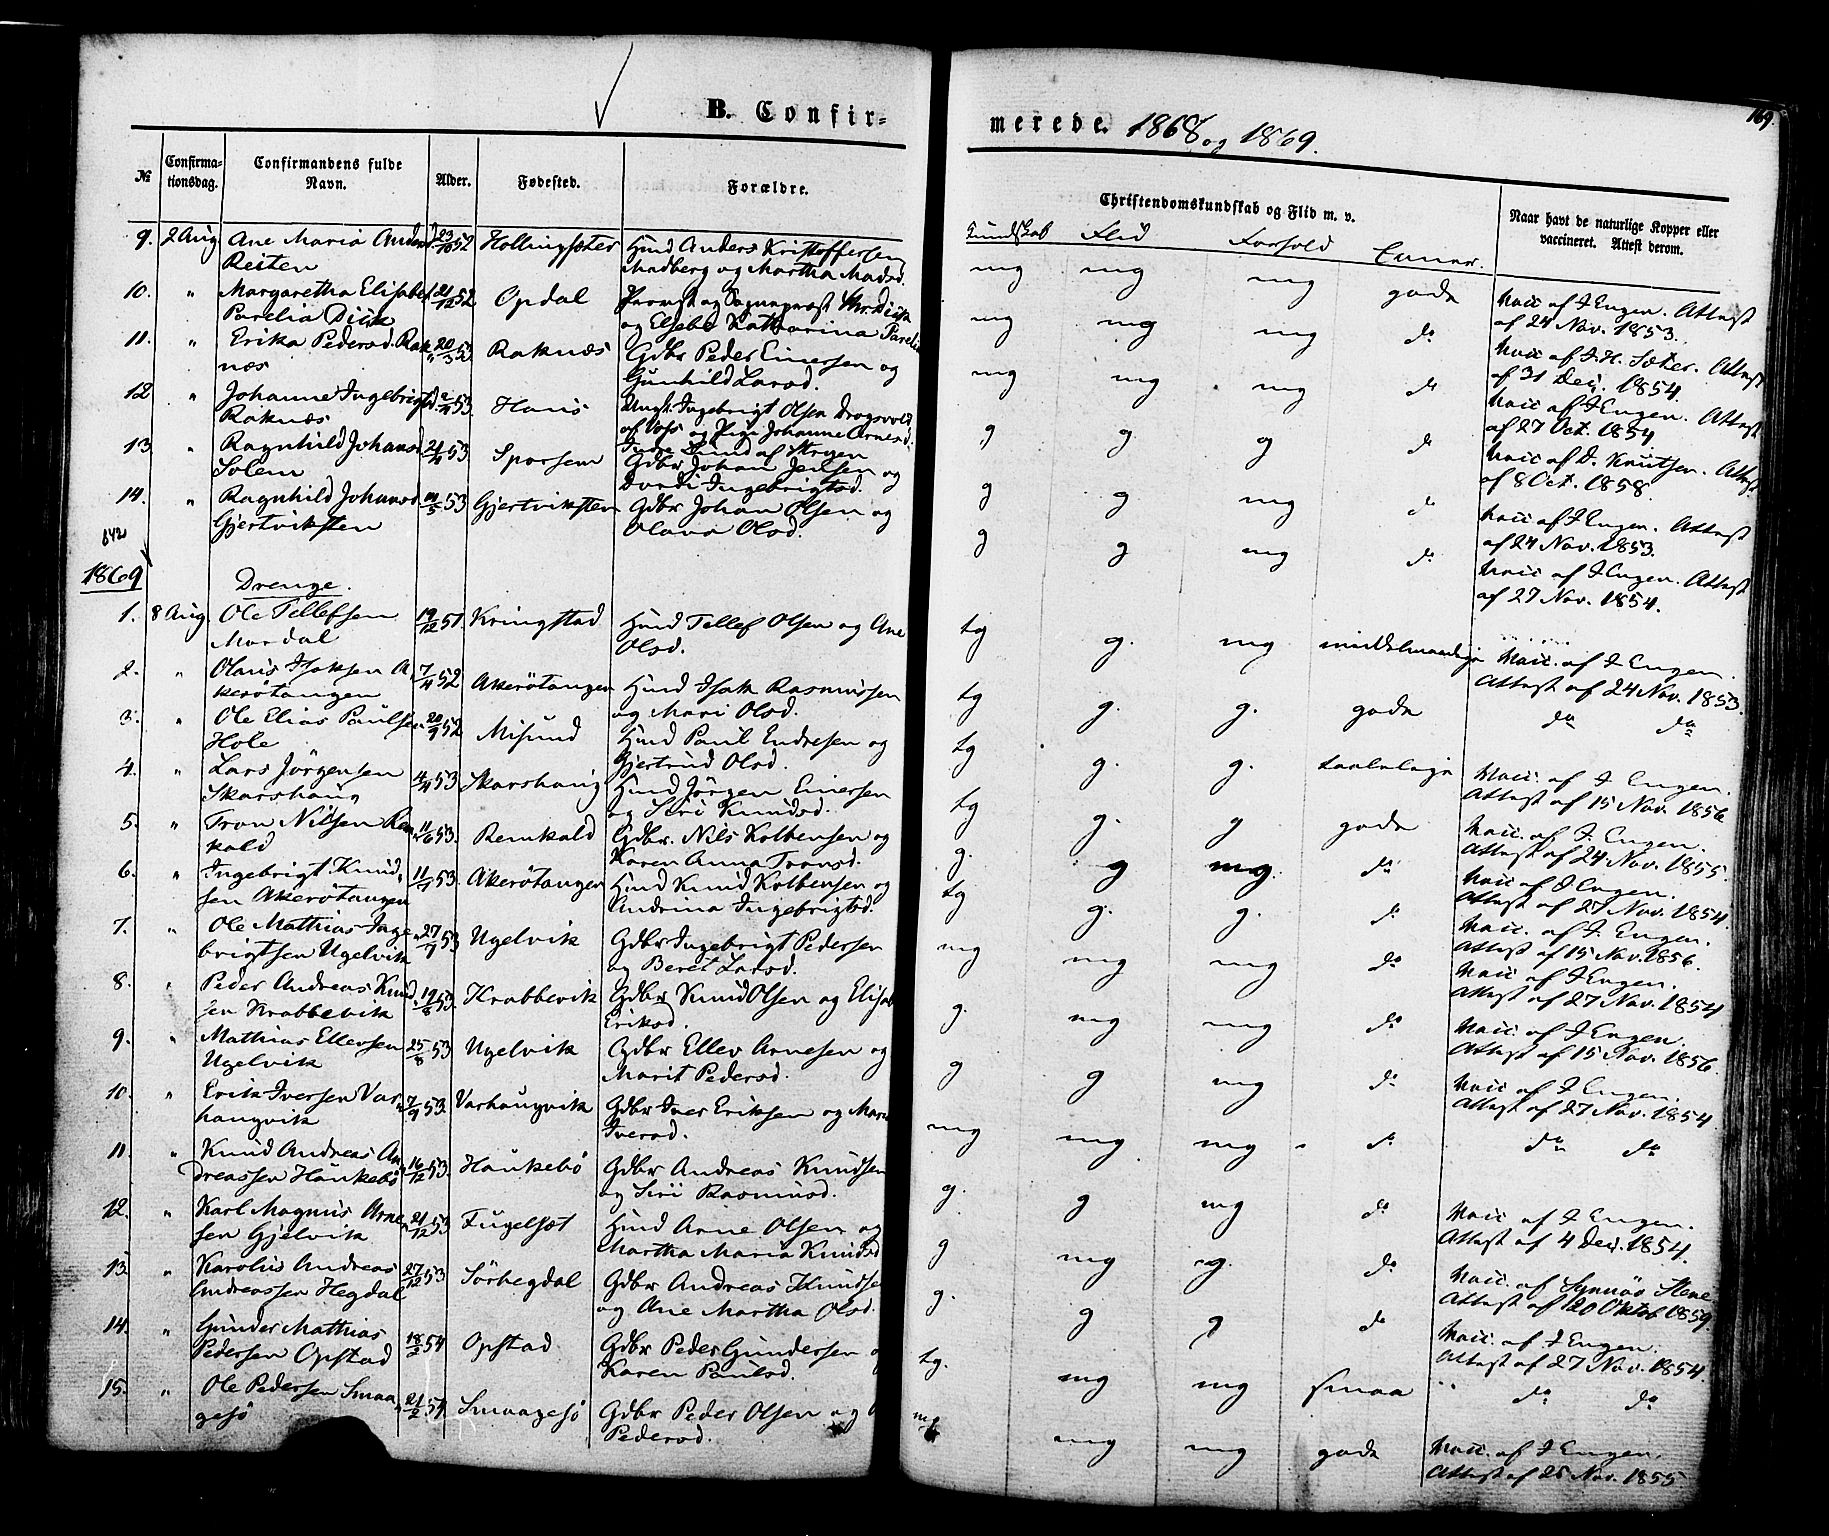 169.
B. Confirmerede. 1868 og 1869.
№ Confirmationsdag. Confirmandens fulde Navn. Alder. Fødested. Forældre. Christendomskundskab og Flid m. v. Naar havt de naturlige Kopper eller vaccineret. Attest derom.
Kundskab Flid Forhold Evner.
9. 2 Aug Ane Maria Andersd 23/10 52 Hollingsæter Hmd Anders Kristoffersen mg mg mg gode Vacc af J Engen. Attest
Reiten Madberg og Martha Madsd. af 24 Nov. 1853.
10. " Margaretha Elisabet 21/12 52 Opdal Provst og Sogneprest Chr. Diük mg mg mg do Vacc af J. H. Sæter. Attest
Parelia Diük og Elsebe Katharina Parelia af 31 Dec. 1854.
11. " Erika Pedersd. Rak 20/3 52 Raknæs Gdbr Peder Einersen og mg mg mg do Vacc af J Engen. Attest
næs Gunhild Larsd. af 27 Oct. 1854.
12 " Johanne Ingebrigtsd 53 Haus Ungk. Ingebrigt Olsen Dragsvold g g g do Vacc af D. Knutsen. Attest
Raknæs af Voss og Pige Johanne Arnesd. af 8 Oct. 1858.
13 " Ragnhild Johansd 53 Sporsem Gdbr Johan Jensen og g g mg do Vacc af J Engen. Attest
Solem Dordi Ingebrigtsd. af 24 Nov. 1853.
14. " Ragnhild Johansd 53 Gjertviksten Gdbr Johan Olsen og g g mg do Vacc af J Engen. Attest
Gjertviksten Olava Olsd. af 27 Nov. 1854.
1869
Drenge.
1. 8 Aug Ole Tellefsen 19/12 51 Kringstad Hmd Tellef Olsen og Ane tg g. mg middelmaadige Vacc. af J Engen.
Mordal Olsd. Attest af 24 Nov. 1853.
2. " Olaus Isaksen A 7/11 52 Akerötangen Hmd Isak Rasmussen tg g. g. gode do do
kerötangen og Mari Olsd.
3. " Ole Elias Paulsen 20/9 52 Misund Hmd Paul Endresen og tg g. g. taalelige Vacc. af J Engen.
Hole Gjertrud Olsd. Attest af 15 Nov. 1856
4. " Lars Jörgensen 4/4 53 Skarshaug Hmd Jörgen Einersen tg g. g gode Vacc. af J. Engen.
Skarshaug og Siri Knudsd. Attest af 24 Nov. 1855.
5. " Tron Nilsen Rem 11/6 53. Remkald Gdbr. Nils Kolbensen og g. g mg. do Vacc af J Engen.
kald Karen Anna Tronsd. Attest af 27 Nov. 1854.
6. " Ingebrigt Knud 11/7 53. Akerötangen Hmd Knud Kolbensen og tg g. g. do Vacc. af J. Engen.
sen Akerötangen Andrina Ingebrigtsd. Attest af 15 Nov. 1856.
7. " Ole Mathias Inge 27/7 53 Ugelvik Gdbr Ingebrigt Pedersen mg mg mg do Vacc af J Engen.
brigtsen Ugelvik og Beret Larsd. Attest af 27 Nov. 1854
8. " Peder Andreas Knud 19/8 53. Krabbevik Gdbr Knud Olsen og Elisab g. mg mg do Vacc. af J Engen.
sen Krabbevik Eriksd. Attest af 15 Nov. 1856.
9. " Mathias Ellevsen 25/8 53 Ugelvik Gdbr Ellev Arnesen og g g mg do Vacc af J Engen.
Ugelvik Marit Pedersd. Attest af 27 Nov. 1854
10. " Erik Iversen Var 7/9 53. Varhaugvik Gdbr Iver Eriksen og Mari mg mg mg do do do
haugvik Iversd.
11. " Knud Andreas An 16/12 53. Haukebö Gdbr Andreas Knudsen g. g mg do Vacc af J Engen.
dreassen Haukebö og Siri Rasmusd. Attest af 4 Dec. 1854.
12. " Karl Magnus Arne 21/12 53 Fugelset Hmd Arne Olsen og g mg g. do Vacc. af Synnöv Stene
sen Gjelvik Martha Maria Knudsd Attest af 20 Oktob. 1859.
13. " Karolus Andreas 27/12 53 Sörhegdal Gdbr Andreas Knudsen g. g g do Vacc. af J Engen.
Andreassen Hegdal og Ane Martha Olsd. Attest af 27 Nov. 1854.
14. " Gunder Mathias 18/2 54 Opstad Gdbr Peder Gundersen tg. mg mg smaa " do do
Pedersen Opstad Karen Paulsd.
15. " Ole Pedersen Smaa 21/2 54 Smaagesö Gdbr Peder Olsen og mg mg mg gode Vacc. af J Engen.
gesö Pedersd. Attest af 25 Nov. 1855